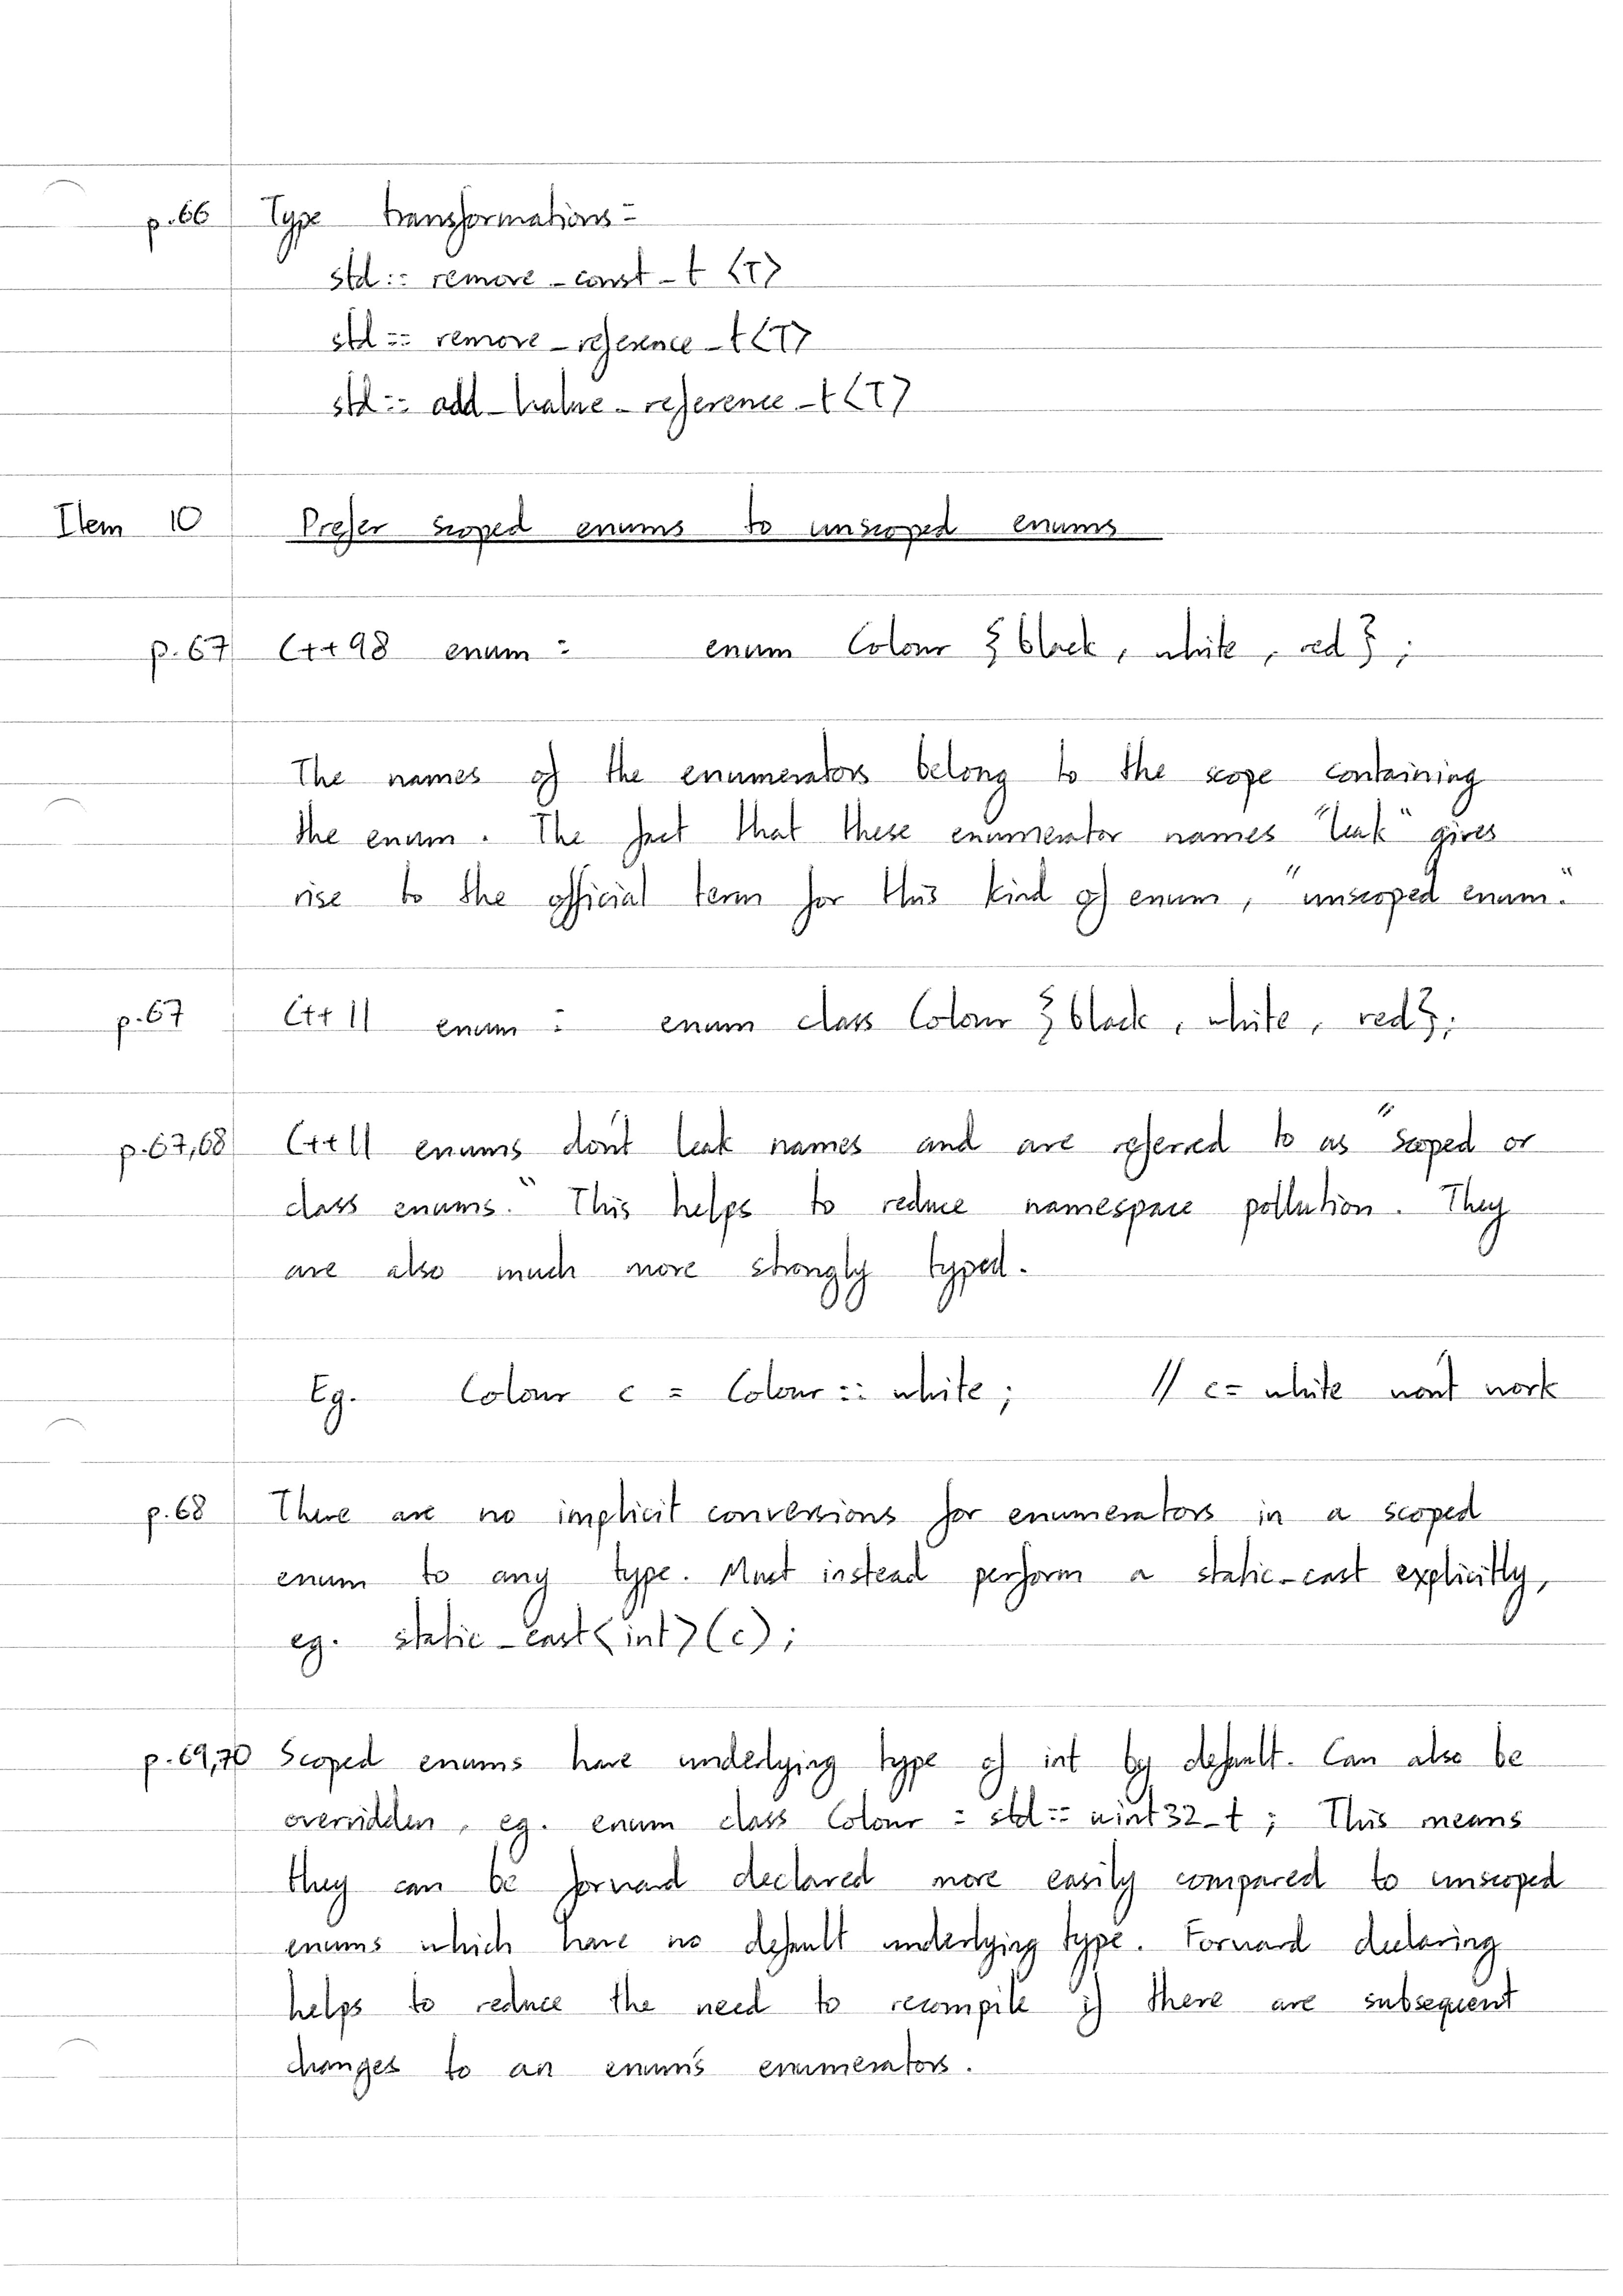 p.66 Type transformations:
std::remove_const_t<T>
std::remove_reference_t<T>
std::add_lvalue_reference_t<T>
Item 10 Prefer scoped enums to unscoped enums
p.67 C++98 enum: enum Colour { black, white, red };
The names of the enumerators belong to the scope containing
the enum. The fact that these enumerator names "leak" gives
rise to the official term for this kind of enum, "unscoped enum."
p.67 C++11 enum: enum class Colour { black, white, red };
p.67,68 C++11 enums don't leak names and are referred to as "scoped or
class enums." This helps to reduce namespace pollution. They
are also much more strongly typed.
Eg. Colour c = Colour::white; // c = white won't work
p.68 There are no implicit conversions for enumerators in a scoped
enum to any type. Must instead perform a static_cast explicitly,
eg. static_cast<int>(c);
p.69,70 Scoped enums have underlying type of int by default. Can also be
overridden, eg. enum class Colour : std::uint32_t; This means
they can be forward declared more easily compared to unscoped
enums which have no default underlying type. Forward declaring
helps to reduce the need to recompile if there are subsequent
changes to an enum's enumerators.